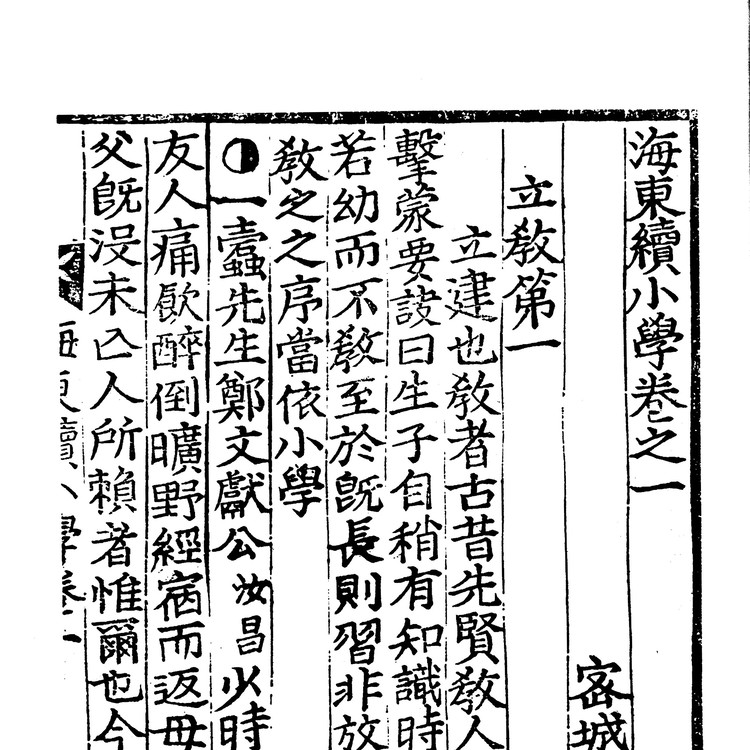 海東續小學卷之一
密城
立教第一
立建也教者古昔先賢教人
擊蒙要訣曰生子自稍有知識時
若幼而不教至於既長則習非放
教之之序當依小學
一蠹先生鄭文獻公汝昌少時
友人痛飮醉倒曠野經宿而返母
父旣没未亡人所賴者惟爾也今
海東續小學卷一